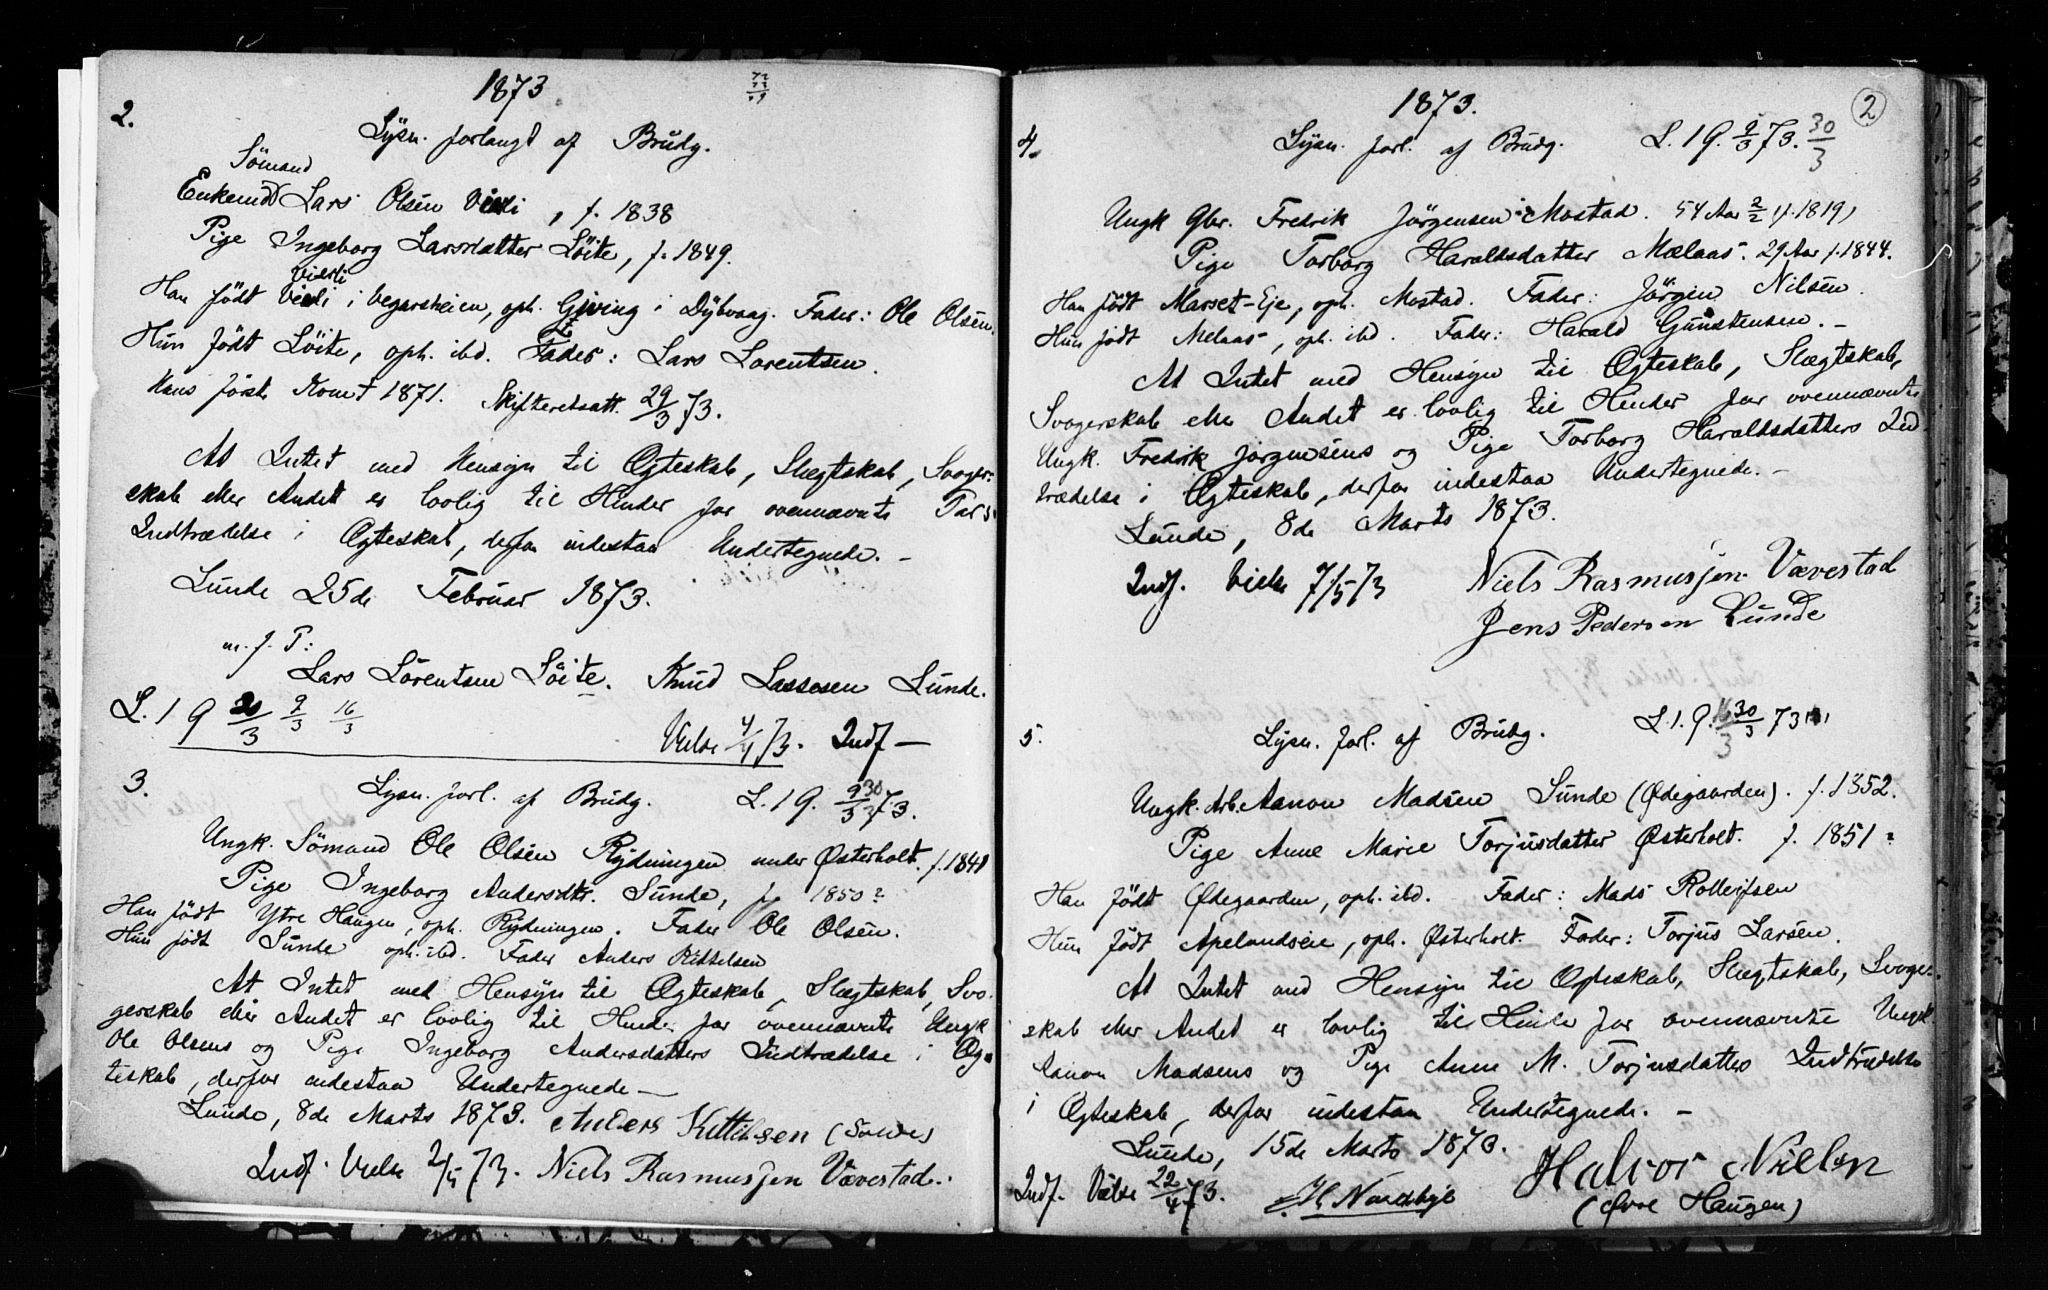 1873
2.
Lysn. forlangt af Brudg.
Sömand
Enkemd Lars Olsen Vierli, f. 1838
Pige Ingeborg Larsdatter Löite, f. 1849.
Vierli
Han född i Vegarsheien, oph. Gjeving i Dybvaag. Fader: Ole Olsen.
Hun født Löite, oph. ibd. Fader: Lars Lorentsen.
Hans første Kone † 1871. Skifteretsatt. 29/3 73.
At Intet med Hensyn til Ægteskab, Slægtskab, Svoger-
skab eller Andet er lovlig til Hinder for ovennævnte Pars
Indtrædelse i Ægteskab, derfor indestaa Undertegnede. –
Lunde 25de Februar 1873.
m. f. P:
Lars Lorentsen Löite. Knud Lassesen Lunde.
L. 1 9 9/3 16/3
Vielse 4/4 73. Indf –
3.
Lysn. forl. af Brudg. L. 1 9. 9/3 30 73.
Ungk. Sömand Ole Olsen Rydningen under Østerholt. f. 1841
Pige Ingeborg Andersdtr. Lunde, f. 1850?
Han født Ytre Haugen, oph. Rydningen. Fader Ole Olsen.
Hun født Lunde oph. ibd. Fader Anders Kittelsen
At Intet med Hensyn til Ægteskab, Slægtskab, Svo-
gerskab eller Andet er lovlig til Hinder for ovennævnte Ungk
Ole Olsens og Pige Ingeborg Andersdatters Indtrædelse i Æg-
teskab, derfor indestaa Undertegnede –
Lunde, 8de Marts 1873. Anders Kittilsen (Lunde)
Indf. Vielse 2/5 73. Niels Rasmussen Vævestad.
2
1873.
4.
Lysn. forl. af Brudg. L. 1 9. 9/3 73. 30/3
Ungk Gbr. Fredrik Jörgensen Mostad. 54 Aar 2/2 (f. 1819)
Pige Torborg Haraldsdatter Mælaas. 29 Aar f. 1844.
Han født Marset-Eje, oph. Mostad. Fader: Jörgen Nilsen.
Hun født Melaas, oph. ibd. Fader: Harald Gunstensen. –
At Intet med Hensyn til Ægteskab, Slægtskab,
Svogerskab eller Andet er lovlig til Hinder for ovennævnte
Ungk. Fredrik Jörgensens og Pige Torborg Haraldsdatters Ind-
trædelse i Ægteskab, derfor indestaa Undertegnede. –
Lunde, 8de Marts 1873.
Indf. Vielse 7/5 73 Niels Rasmussen Vævestad
Jens Pedersen Lunde
5.
Lysn. forl. af Brudg. L. 1. 9. 16/3 30/3 73
Ungk. Arb. Aanon Madsen Lunde (Ødegaarden). f. 1852.
Pige Anne Marie Torjusdatter Østerholt. f. 1851?
Han født Ødegaarden, oph. ibd. Fader: Mads Rolleifsen
Hun født Apelandseie, oph. Østerholt. Fader: Torjus Larsen.
At Intet med Hensyn til Ægteskab, Slægtskab, Svoger-
skab eller Andet er lovlig til Hinder for ovennævnte Ungk.
Aanon Madsens og Pige Anne M. Torjusdatters Indtrædelse
i Ægteskab, derfor indestaa Undertegnede. –
Lunde, 15de Marts 1873.
Halvor Nielsen
Indf. Vielse 22/4 73. (Øvre Haugen)